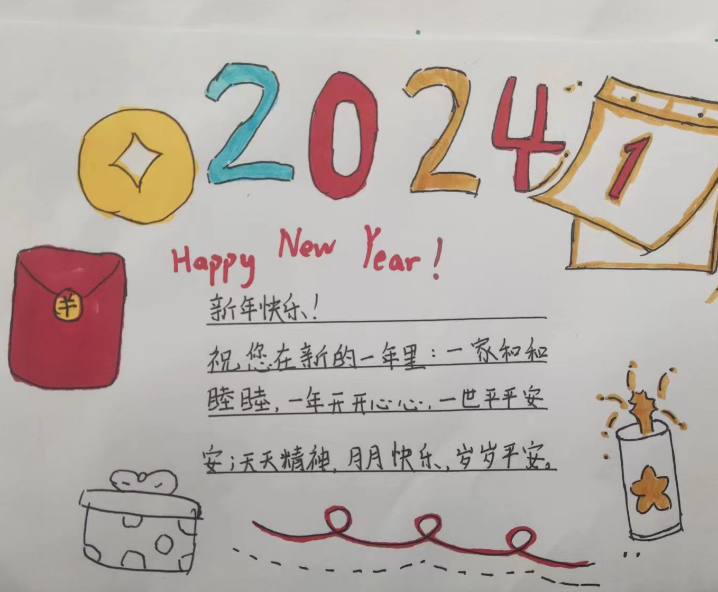 2024
1
Happy New Year!
羊
新年快乐!
祝您在新的一年里:一家和和
睦睦,一年开开心心,一世平平安
安;天天精神,月月快乐,岁岁平安。